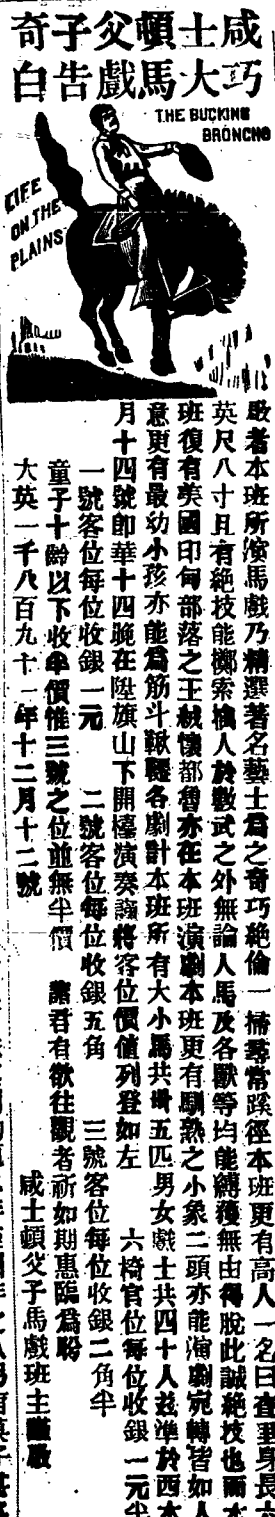 咸士頓父子奇
巧大馬戲告白
THE BUCKING
BRONCHO
LIFE
ON THE
PLAINS
啟者本班所演馬戲乃精選著名藝士爲之奇巧絕倫一掃尋常蹊徑本班更有高人一名曰查身長六
英尺八寸且有絕技能擲索擒人於數武之外無論人馬及各獸等均能縛獲無由得脫此誠絕技也而本
班復有美國印甸部落之王絨懷都魯亦在本班演劇本班更有馴熟之小象二頭亦能演劇宛轉皆如人
意更有最幼小孩亦能爲筋斗鞦韆各劇計本班所有大小馬共卅五匹男女戲士共四十人茲準於西本
月十四號即華十四晚在陞旗山下開檯演奏謹將客位價值列登如左 六椅官位每位收銀一元半
一號客位每位收銀一元 二號客位每位收銀五角 三號客位每位收銀二角半
童子十齡以下收半價惟三號之位並無半價 諸君有欲往觀者祈如期惠臨爲盼
大英一千八百九十一年十二月十二號 咸士頓父子馬戲班主謹啟